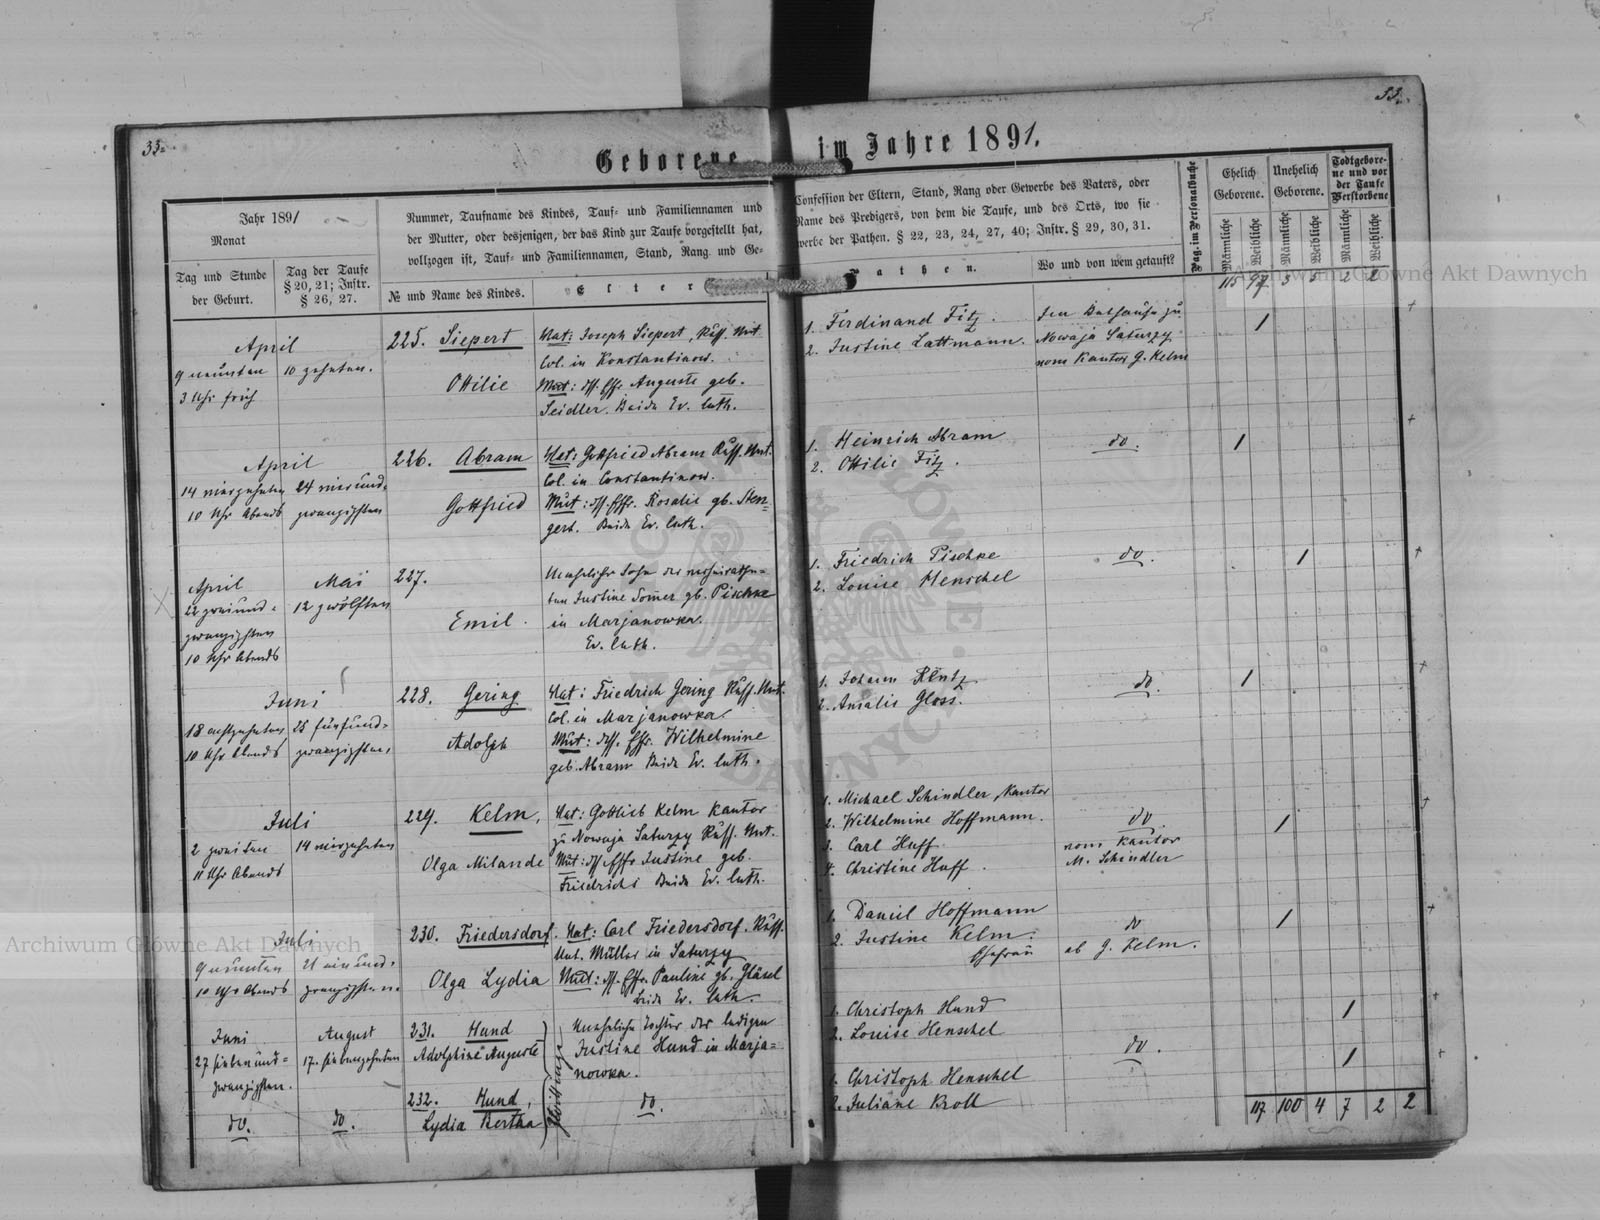 33.
33.
Geborene im Jahre 1891.
Jahr 1891
Monat
Tag und Stunde
der Geburt.
Tag der Taufe
§ 20, 21; Instr.
§ 26, 27.
Nummer, Taufname des Kindes, Tauf- und Familiennamen und
der Mutter, oder desjenigen, der das Kind zur Taufe vorgestellt hat,
vollzogen ist, Tauf- und Familiennamen, Stand, Rang und Ge-
№ und Name des Kindes.
Elter
Confession der Eltern, Stand, Rang oder Gewerbe des Vaters, oder
Name des Predigers, von dem die Taufe, und des Orts, wo sie
werbe der Pathen. § 22, 23, 24, 27, 40; Instr. § 29, 30, 31.
Pathen.
Wo und von wem getauft?
Pag. im Personalbuche
Ehelich
Geborene.
Unehelich
Geborene.
Todtgebore-
ne und vor
der Taufe
Verstorbene
Männliche
Weibliche
Männliche
Weibliche
Männliche
Weibliche
115 97 3 5 2 2
April
9 neunten
3 Uhr früh
10 zehnten.
225. Siepert
Ottilie
Vat: Joseph Siepert, Russ. Unt.
Col. in Konstantinow.
Mut: dss. Ehfr. Auguste geb.
Seidler. Beide Ev. luth.
1. Ferdinand Fitz.
2. Justine Lattmann.
Im Bethause zu
Nowaja Saturzy
vom Kantor G. Kelm
1
April
14 vierzehnten
10 Uhr Abends
24 vierund-
zwanzigsten
226. Abram
Gottfried
Vat: Gottfried Abram Russ. Unt.
Col. in Constantinow.
Mut: dss. Ehfr. Rosalie gb. Sten-
gert. Beide Ev. luth.
1. Heinrich Abram
2. Ottilie Fitz.
do.
1
April
22 zweiund-
zwanzigsten
10 Uhr Abends
Mai
12 zwölften
227.
Emil.
Unehelicher Sohn der verheirathe-
ten Justine Somer gb. Pischke
in Marjanowka.
Ev. luth.
1. Friedrich Pischke
2. Louise Henschel
do.
1
Juni
18 achtzehnten
10 Uhr Abends
25 fünfund-
zwanzigsten
228. Gering
Adolph
Vat: Friedrich Gering Russ. Unt.
Col. in Marjanowka
Mut: dss. Ehfr. Wilhelmine
geb. Abram Beide Ev. luth.
1. Johann Rentz
2. Amalie Gloss.
do.
1
Juli
2 zweiten
11 Uhr Abends
14 vierzehnten
229. Kelm,
Olga Milande
Vat: Gottlieb Kelm Kantor
zu Nowaja Saturzy Russ. Unt.
Mut: dss Ehfr Justine geb.
Friedrichs Beide Ev. luth.
1. Michael Schindler, Kantor
2. Wilhelmine Hoffmann.
3. Carl Huff
4. Christine Huff.
do
vom Kantor
M. Schindler
1
Juli
9 neunten
10 Uhr Abends
21 einund-
zwanzigsten.
230. Friedersdorf.
Olga Lydia
Vat: Carl Friedersdorf. Russ.
Unt. Müller in Saturzy
Mut: dss. Ehfr. Pauline gb. Gläsel
beide Ev. luth.
1. Daniel Hoffmann
2. Justine Kelm.
Ehefrau
do
G. Kelm.
1
Juni
27 siebenund-
zwanzigsten.
August
17. siebenzehnten
231. Hund
Adolphine Auguste
Uneheliche Tochter der ledigen
Justine Hund in Marja-
nowka.
1. Christoph Hund
2. Louise Henschel
do.
1
do.
do.
232. Hund,
Lydia Bertha
Zwillinge
do.
1. Christoph Henschel
2. Juliane Kroll
1
117 100 4 7 2 2
Archiwum Główne Akt Dawnych
Archiwum Główne Akt Dawnych